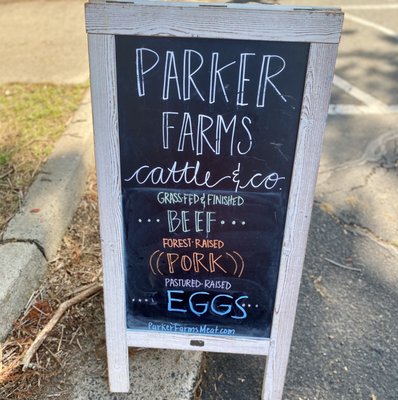 PARKER
FARMS
cattle & co.
GRASS-FED & FINISHED
BEEF
FOREST-RAISED
((PORK))
PASTURED-RAISED
EGGS
ParkerFarmsMeat.com